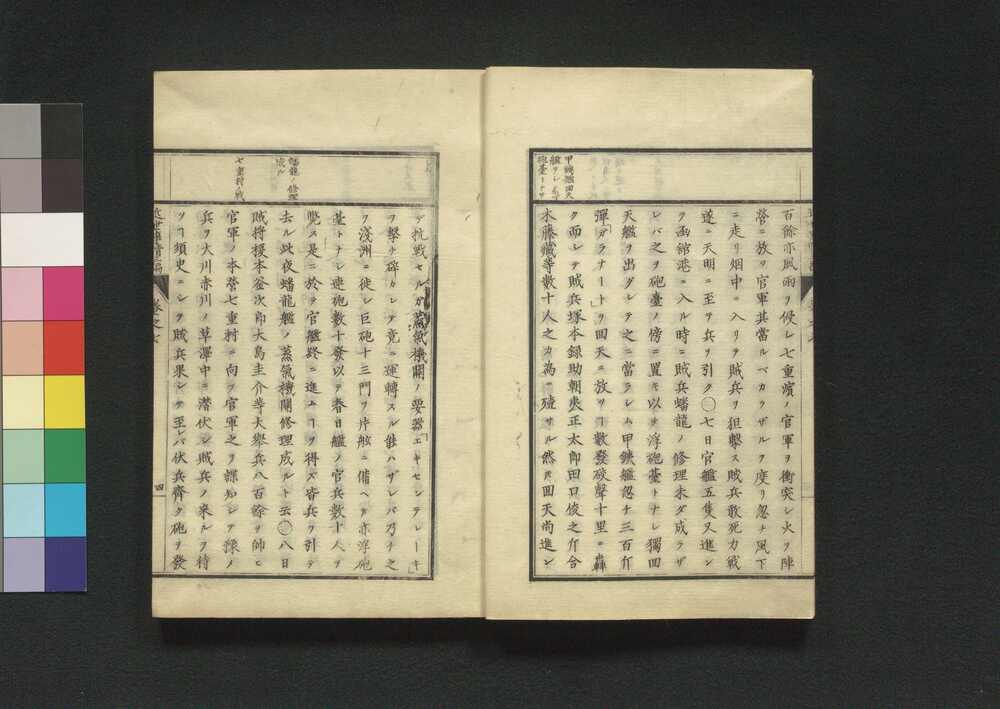 百餘亦風雨ヲ侵シ七重濱ノ官軍ヲ衝突シ火ヲ陣
營ニ放ヲ官軍其當ルベカラザルヲ度リ忽チ風下
ニ走リ烟中ニ入リテ賊兵ヲ狙擊ス賊兵敢死力戰
遂ニ天明ニ至ヲ兵ヲ引ク〇七日官艦五隻又進ン
ヲ函館港ニ入ル時ニ賊兵蟠龍ノ修理未ダ成ラザ
レバ之ヲ砲臺ノ傍ニ置キ以テ浮砲臺トナシ獨回
天艦ヲ出グシテ之ニ當ラシム甲鐵艦忽チ三百斤
彈「ガラナート」ヲ回天ニ放ツ丁數發破聲十里ニ轟
ク而シテ賊兵塚本録助朝夷正太郎田口俊之介合
木藤藏等數十人之カ為ニ殪サル然𪜈回天尚進ン
甲鐵艦回天
艦ヲシ
砲臺トナサ
デ抗戰セルガ蒸氣機關ノ要器「エキセンテレーキ」
ヲ擊チ碎カレテ竟ニ運轉スル能ハザレバ乃チ之
ヲ淺洲ニ徙シ巨砲十三門ヲ片舷ニ備ヘテ亦浮砲
臺トナシ連砲數十發以テ春日艦ノ官兵數十人ヲ
斃ス是ニ於テ官艦終ニ進ム丁ヲ得ズ皆兵ヲ引テ
去ル此夜蟠龍艦ノ蒸氣機關修理成ルト云〇八日
賊将榎本釜次郎大島圭介等大擧兵八百餘ヲ師ヒ
官軍ノ本營七重村ニ向ヲ官軍之ヲ諜知シテ豫ノ
兵ヲ大川赤川ノ草澤中ニ潜伏シ賊兵ノ来ルヲ待
ツ丁須臾ニシテ賊兵果シテ至レバ伏兵齊ク砲ヲ發
蟠龍ノ修理
成ル
七重村ノ戰
四